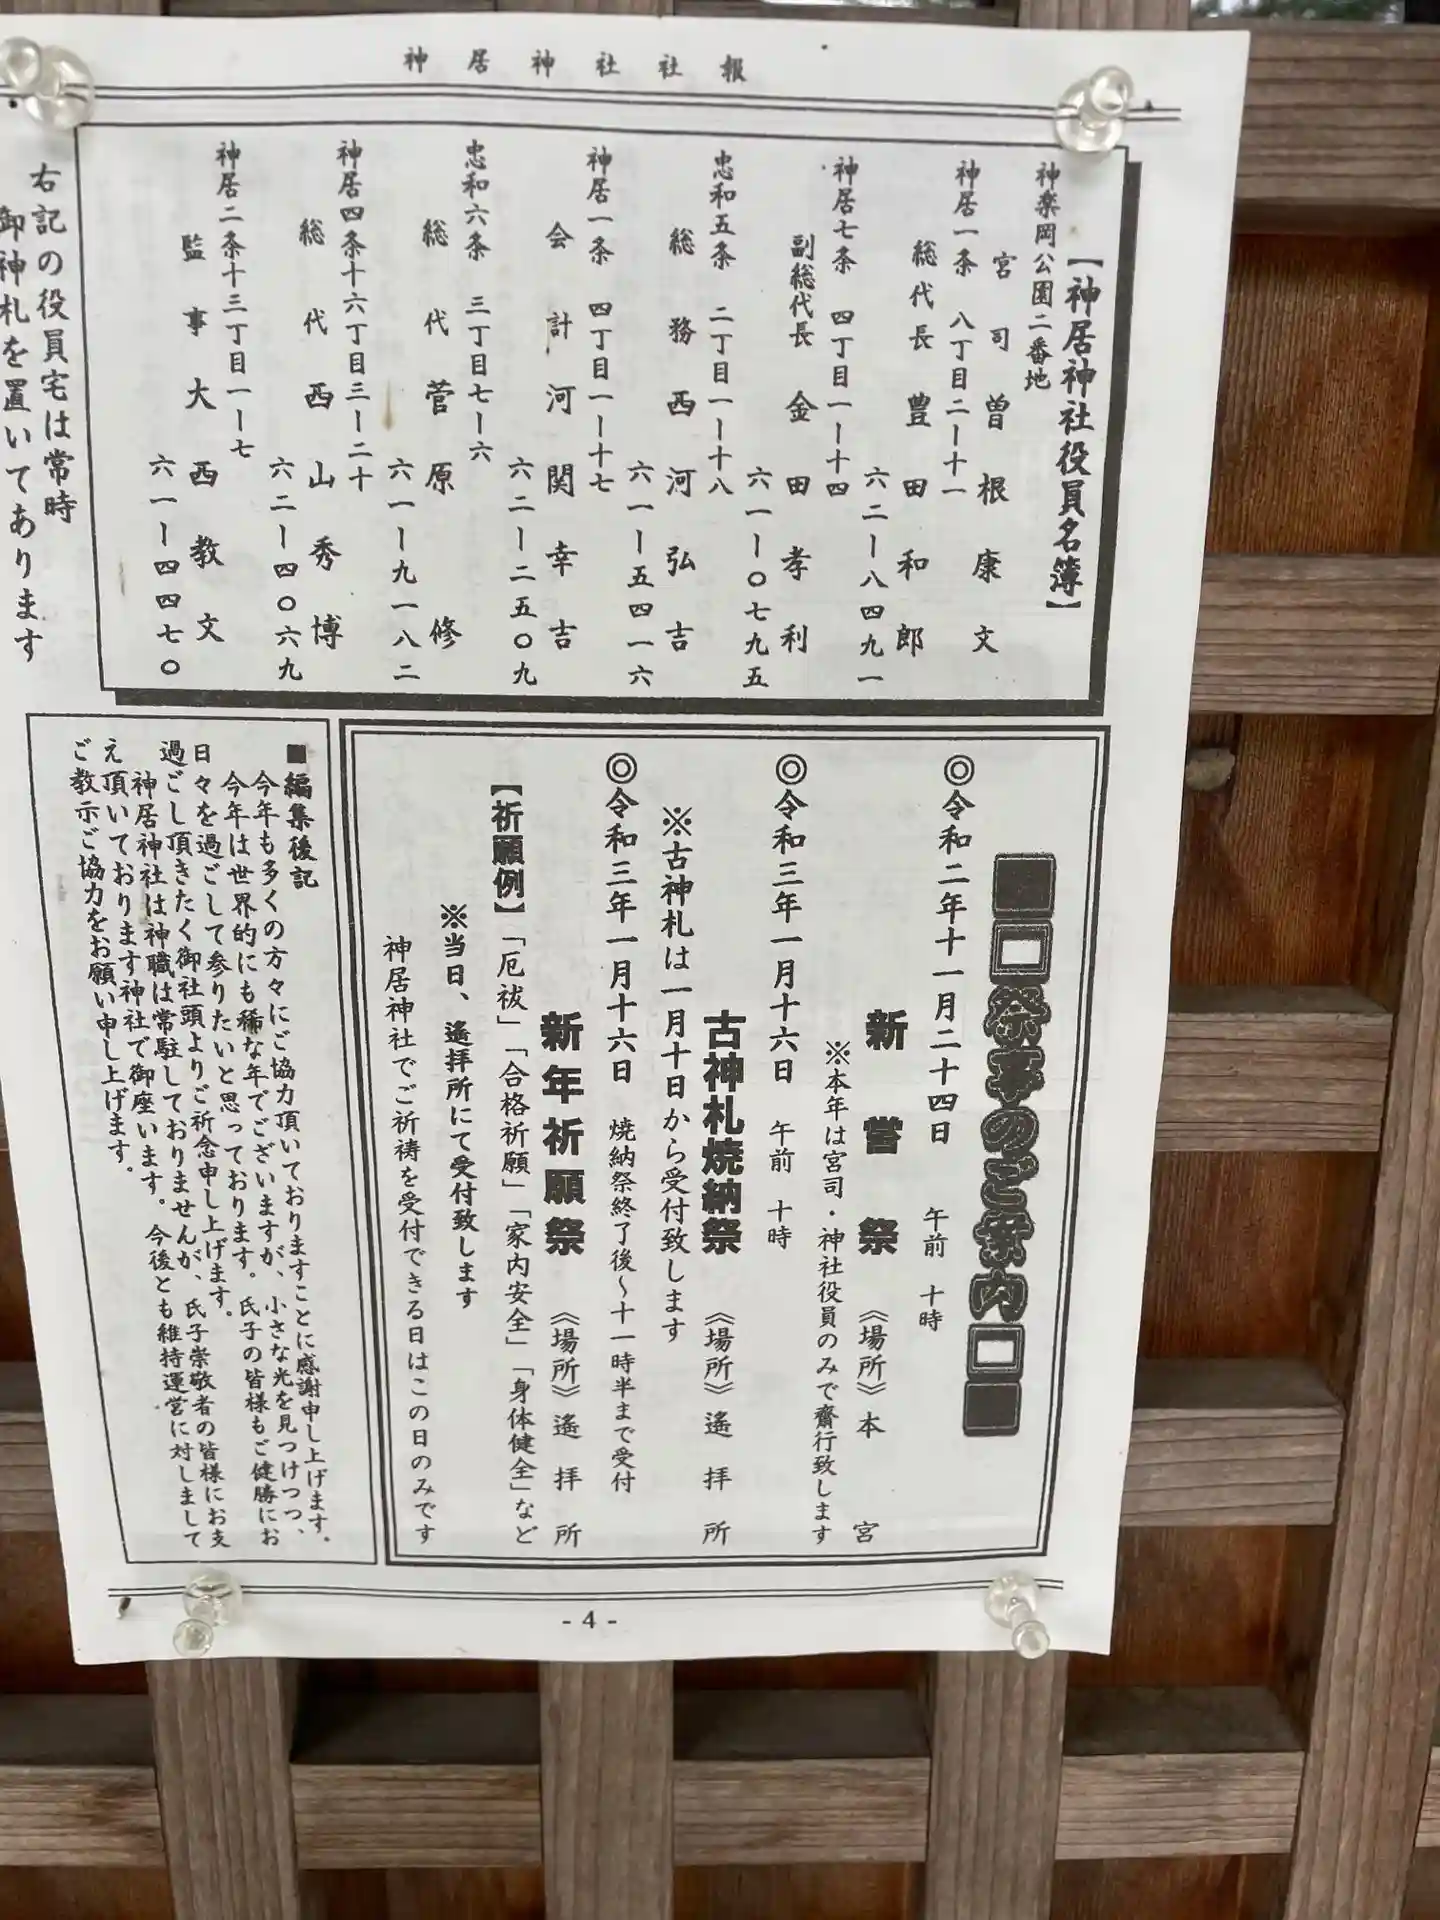 神居神社社報
【神居神社役員名簿】
神楽岡公園二番地
宮司 曽根康文
神居一条 八丁目二ー十一
総代長 豊田和郎
六二ー八四九一
神居七条 四丁目一ー十四
副総代長 金田孝利
六一ー〇七九五
忠和五条 二丁目一ー十八
総務 西河弘吉
六一ー五四一六
神居一条 四丁目一ー十七
会計 河関幸吉
六二ー二五〇九
忠和六条 三丁目七ー六
総代 菅原修
六一ー九一八二
神居四条十六丁目三ー二十
総代 西山秀博
六二ー四〇六九
神居二条十三丁目一ー七
監事 大西教文
六一ー四四七〇
右記の役員宅は常時
御神札を置いてあります
■□祭事のご案内□■
◎令和二年十一月二十四日 午前 十時
新嘗祭 《場所》本宮
※本年は宮司・神社役員のみで齋行致します
◎令和三年一月十六日 午前 十時
古神札焼納祭 《場所》遙拝所
※古神札は一月十日から受付致します
◎令和三年一月十六日 焼納祭終了後～十一時半まで受付
新年祈願祭 《場所》遙拝所
【祈願例】「厄祓」「合格祈願」「家内安全」「身体健全」など
※当日、遙拝所にて受付致します
神居神社でご祈祷を受付できる日はこの日のみです
■編集後記
今年も多くの方々にご協力頂いておりますことに感謝申し上げます。
今年は世界的にも稀な年でございますが、小さな光を見つけつつ、
日々を過ごして参りたいと思っております。氏子の皆様もご健勝にお
過ごし頂きたく御社頭よりご祈念申し上げます。
神居神社は神職は常駐しておりませんが、氏子崇敬者の皆様にお支
え頂いております神社で御座います。今後とも維持運営に対しまして
ご教示ご協力をお願い申し上げます。
- 4 -